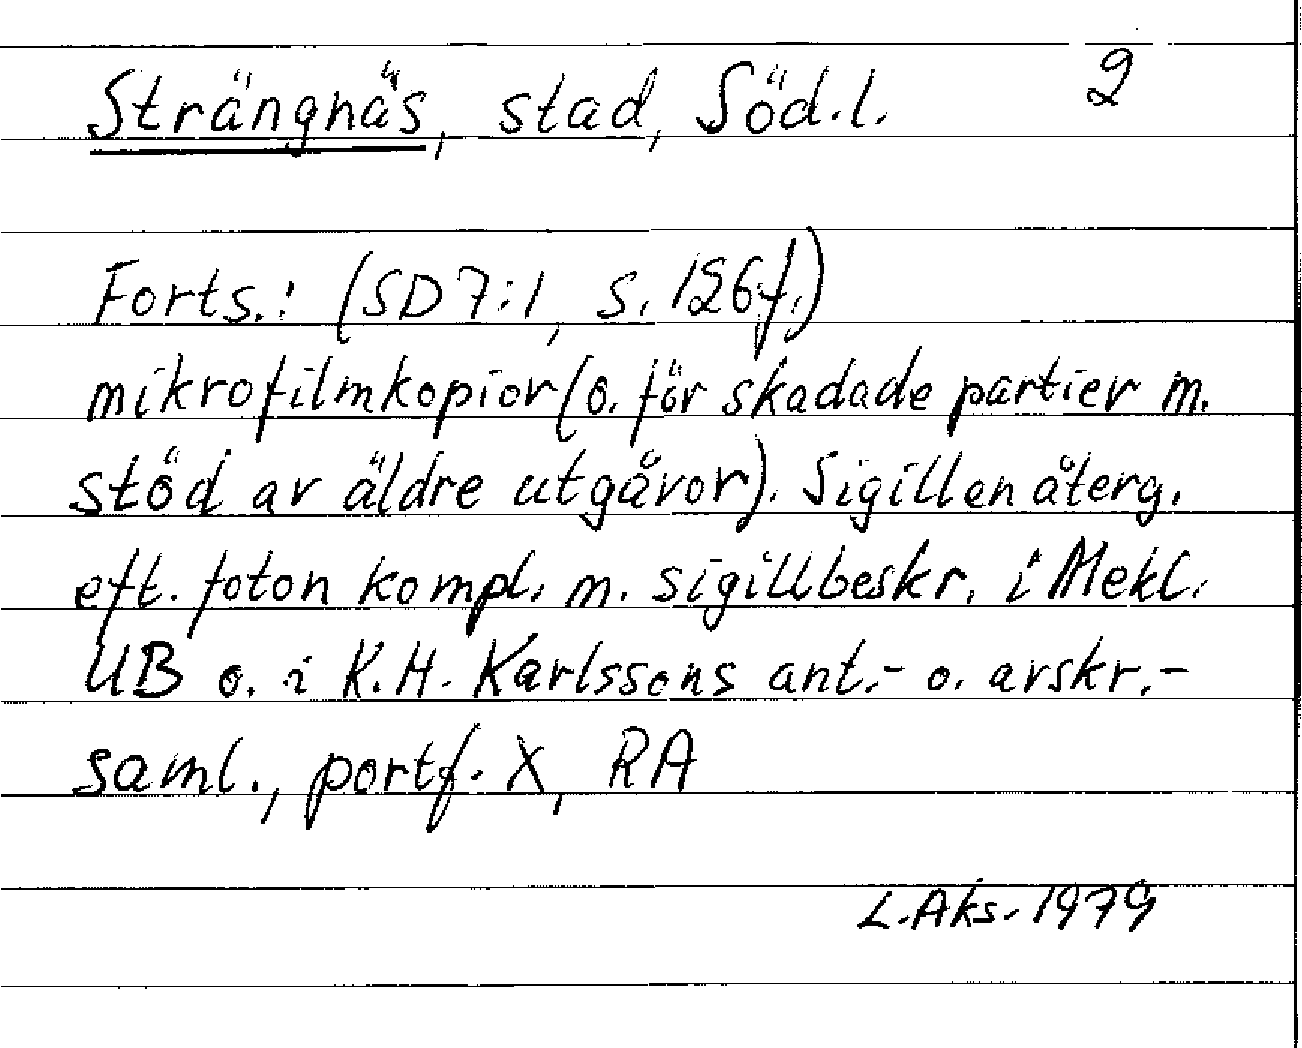 Strängnäs, stad, Söd.l. 2
Forts.: (SD 7:1, s. 126f.)
mikrofilmkopior (o. för skadade partier m.
stöd av äldre utgåvor). Sigillen återg.
eft. foton kompl. m. sigillbeskr. i Mekl.
UB o. i K.H. Karlssons ant.- o. avskr.-
saml., portf. X, RA
L.Aks. 1979